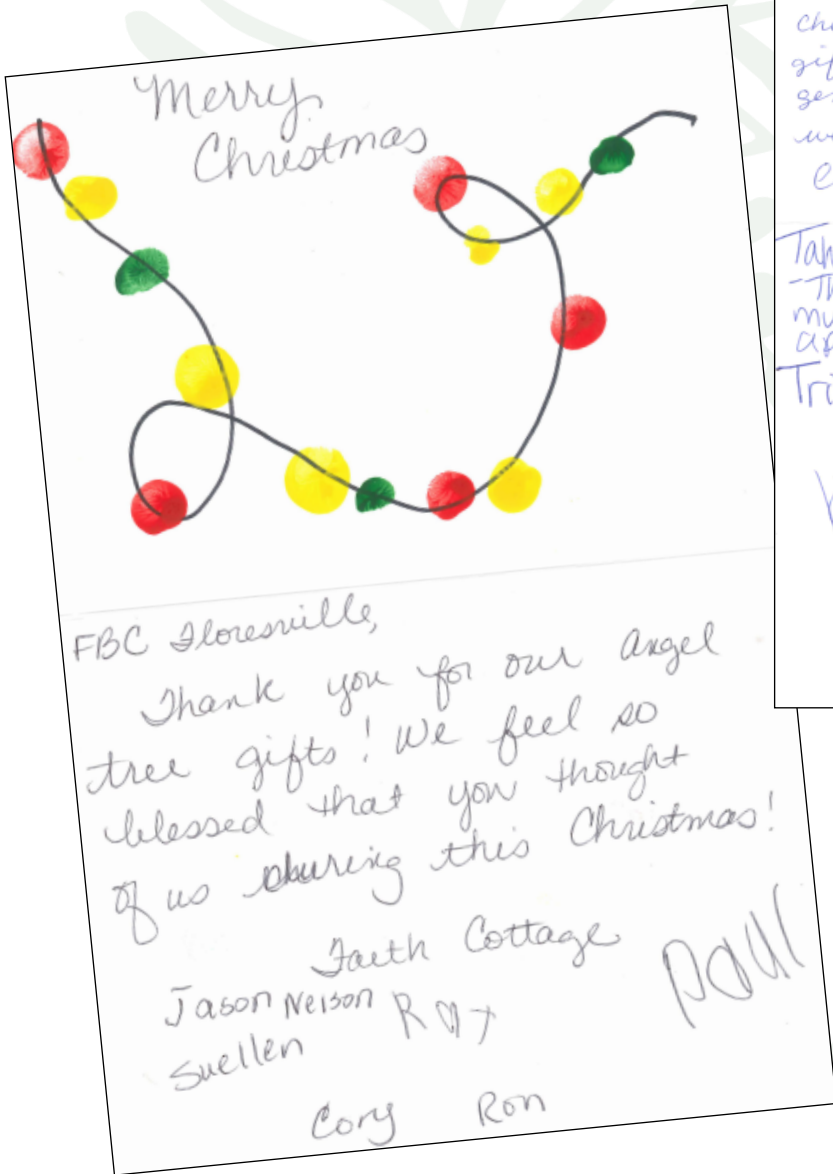 Merry
Christmas
FBC Floresville,
Thank you for our angel
tree gifts! We feel so
blessed that you thought
of us during this Christmas!
Faith Cottage
Jason Nelson
Suellen
Paul
Cory Ron